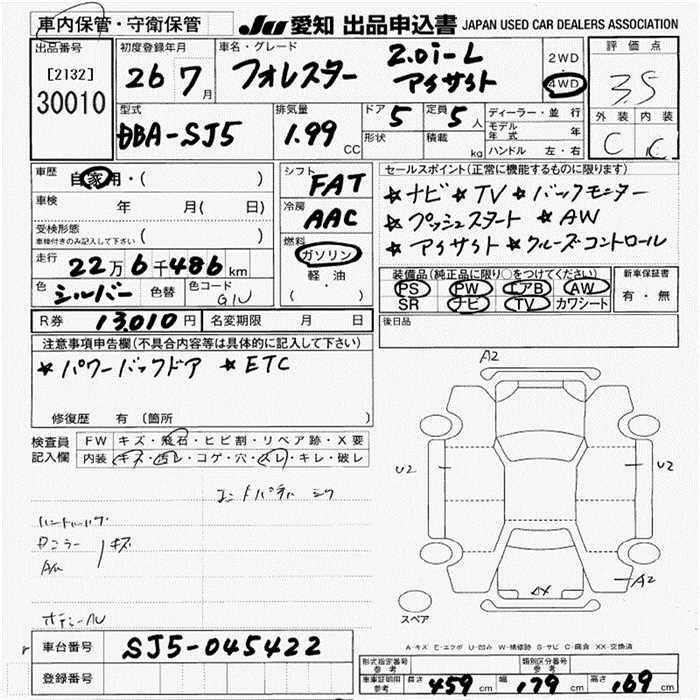 車内保管・守衛保管
JU 愛知 出品申込書 JAPAN USED CAR DEALERS ASSOCIATION
出品番号
[2132]
30010
初度登録年月
26 7月
車名・グレード
フォレスター 2.0i-L アイサイト
2WD
4WD
評価点
3.5
外装 内装
C C
型式
DBA-SJ5
排気量
1.99 CC
ドア 5
形状
定員 5人
積載 kg
ディーラー・並行
モデル年式 年
ハンドル 左・右
車歴
自家用・( )
車検 年 月( 日)
受検形態
車検付きのみ記入して下さい ( )
走行
22万6千486km
色 シルバー 色替 色コード G1U
シフト
FAT
冷房
AAC
燃料
ガソリン
軽油
( )
セールスポイント(正常に機能するものに限ります)
★ナビ ★TV ★バックモニター
★プッシュスタート ★AW
★アイサイト ★クルーズコントロール
装備品(純正品に限り○をつけてください)
PS PW エアB AW
SR ナビ TV カワシート
新車保証書
有・無
R券 13,010円 名変期限 月 日
後日品
注意事項申告欄(不具合内容等は具体的に記入して下さい)
★パワーバックドア ★ETC
修復歴 有 (箇所 )
検査員記入欄
FW キズ・飛石・ヒビ割・リペア跡・X要
内装 キズ・汚レ・コゲ・穴・スレ・キレ・破レ
キズ
A2
U2
U2
A2
スペア
A-キズ E-エクボ U-凹み W-補修跡 S-サビ C-腐食 XX-交換済
車台番号 SJ5-045422
登録番号
形式指定番号 参考
類別区分番号 参考
車庫証明用 参考 長さ 459cm 幅 179cm 高さ 169cm